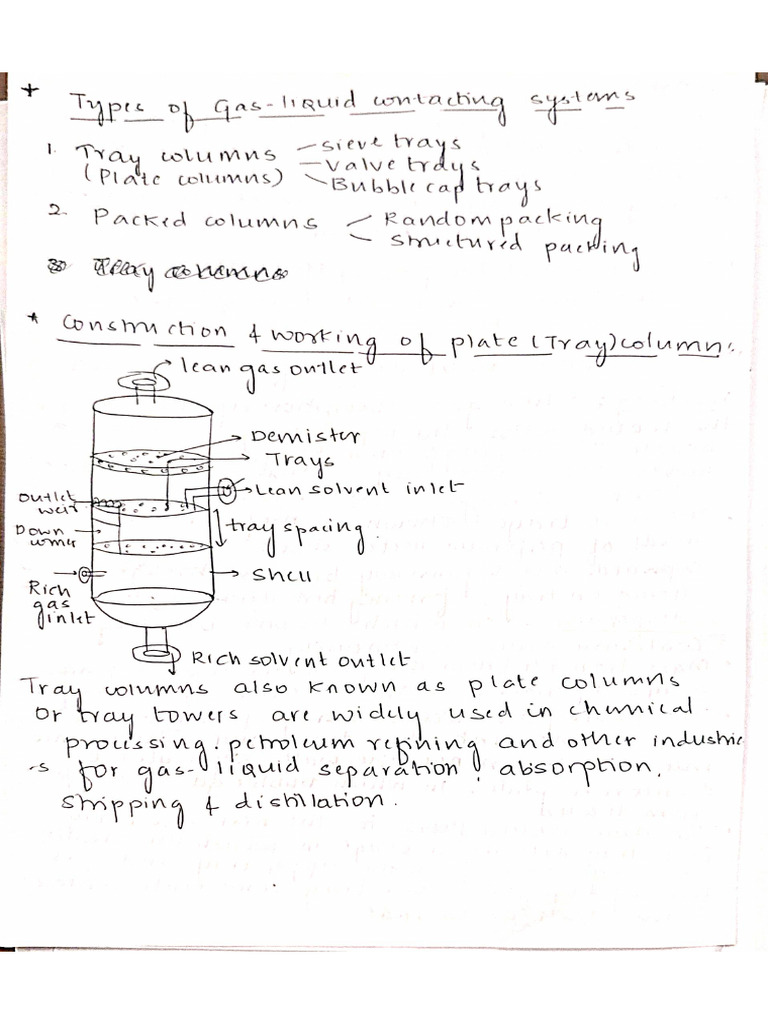 * Types of Gas-liquid contacting systems
1. Tray columns — sieve trays
(Plate columns) — Valve trays
— Bubble cap trays
2. Packed columns — Random packing
— structured packing
3. Tray columns
* Construction & working of plate (Tray) column:
lean gas outlet
Demister
Trays
Lean solvent inlet
outlet
weir
tray spacing
Down
comer
Shell
Rich
gas
inlet
Rich solvent outlet
Tray columns also known as plate columns
or tray towers are widely used in chemical
processing. petroleum refining and other industrie
-s for gas-liquid separation, absorption,
stripping & distillation.